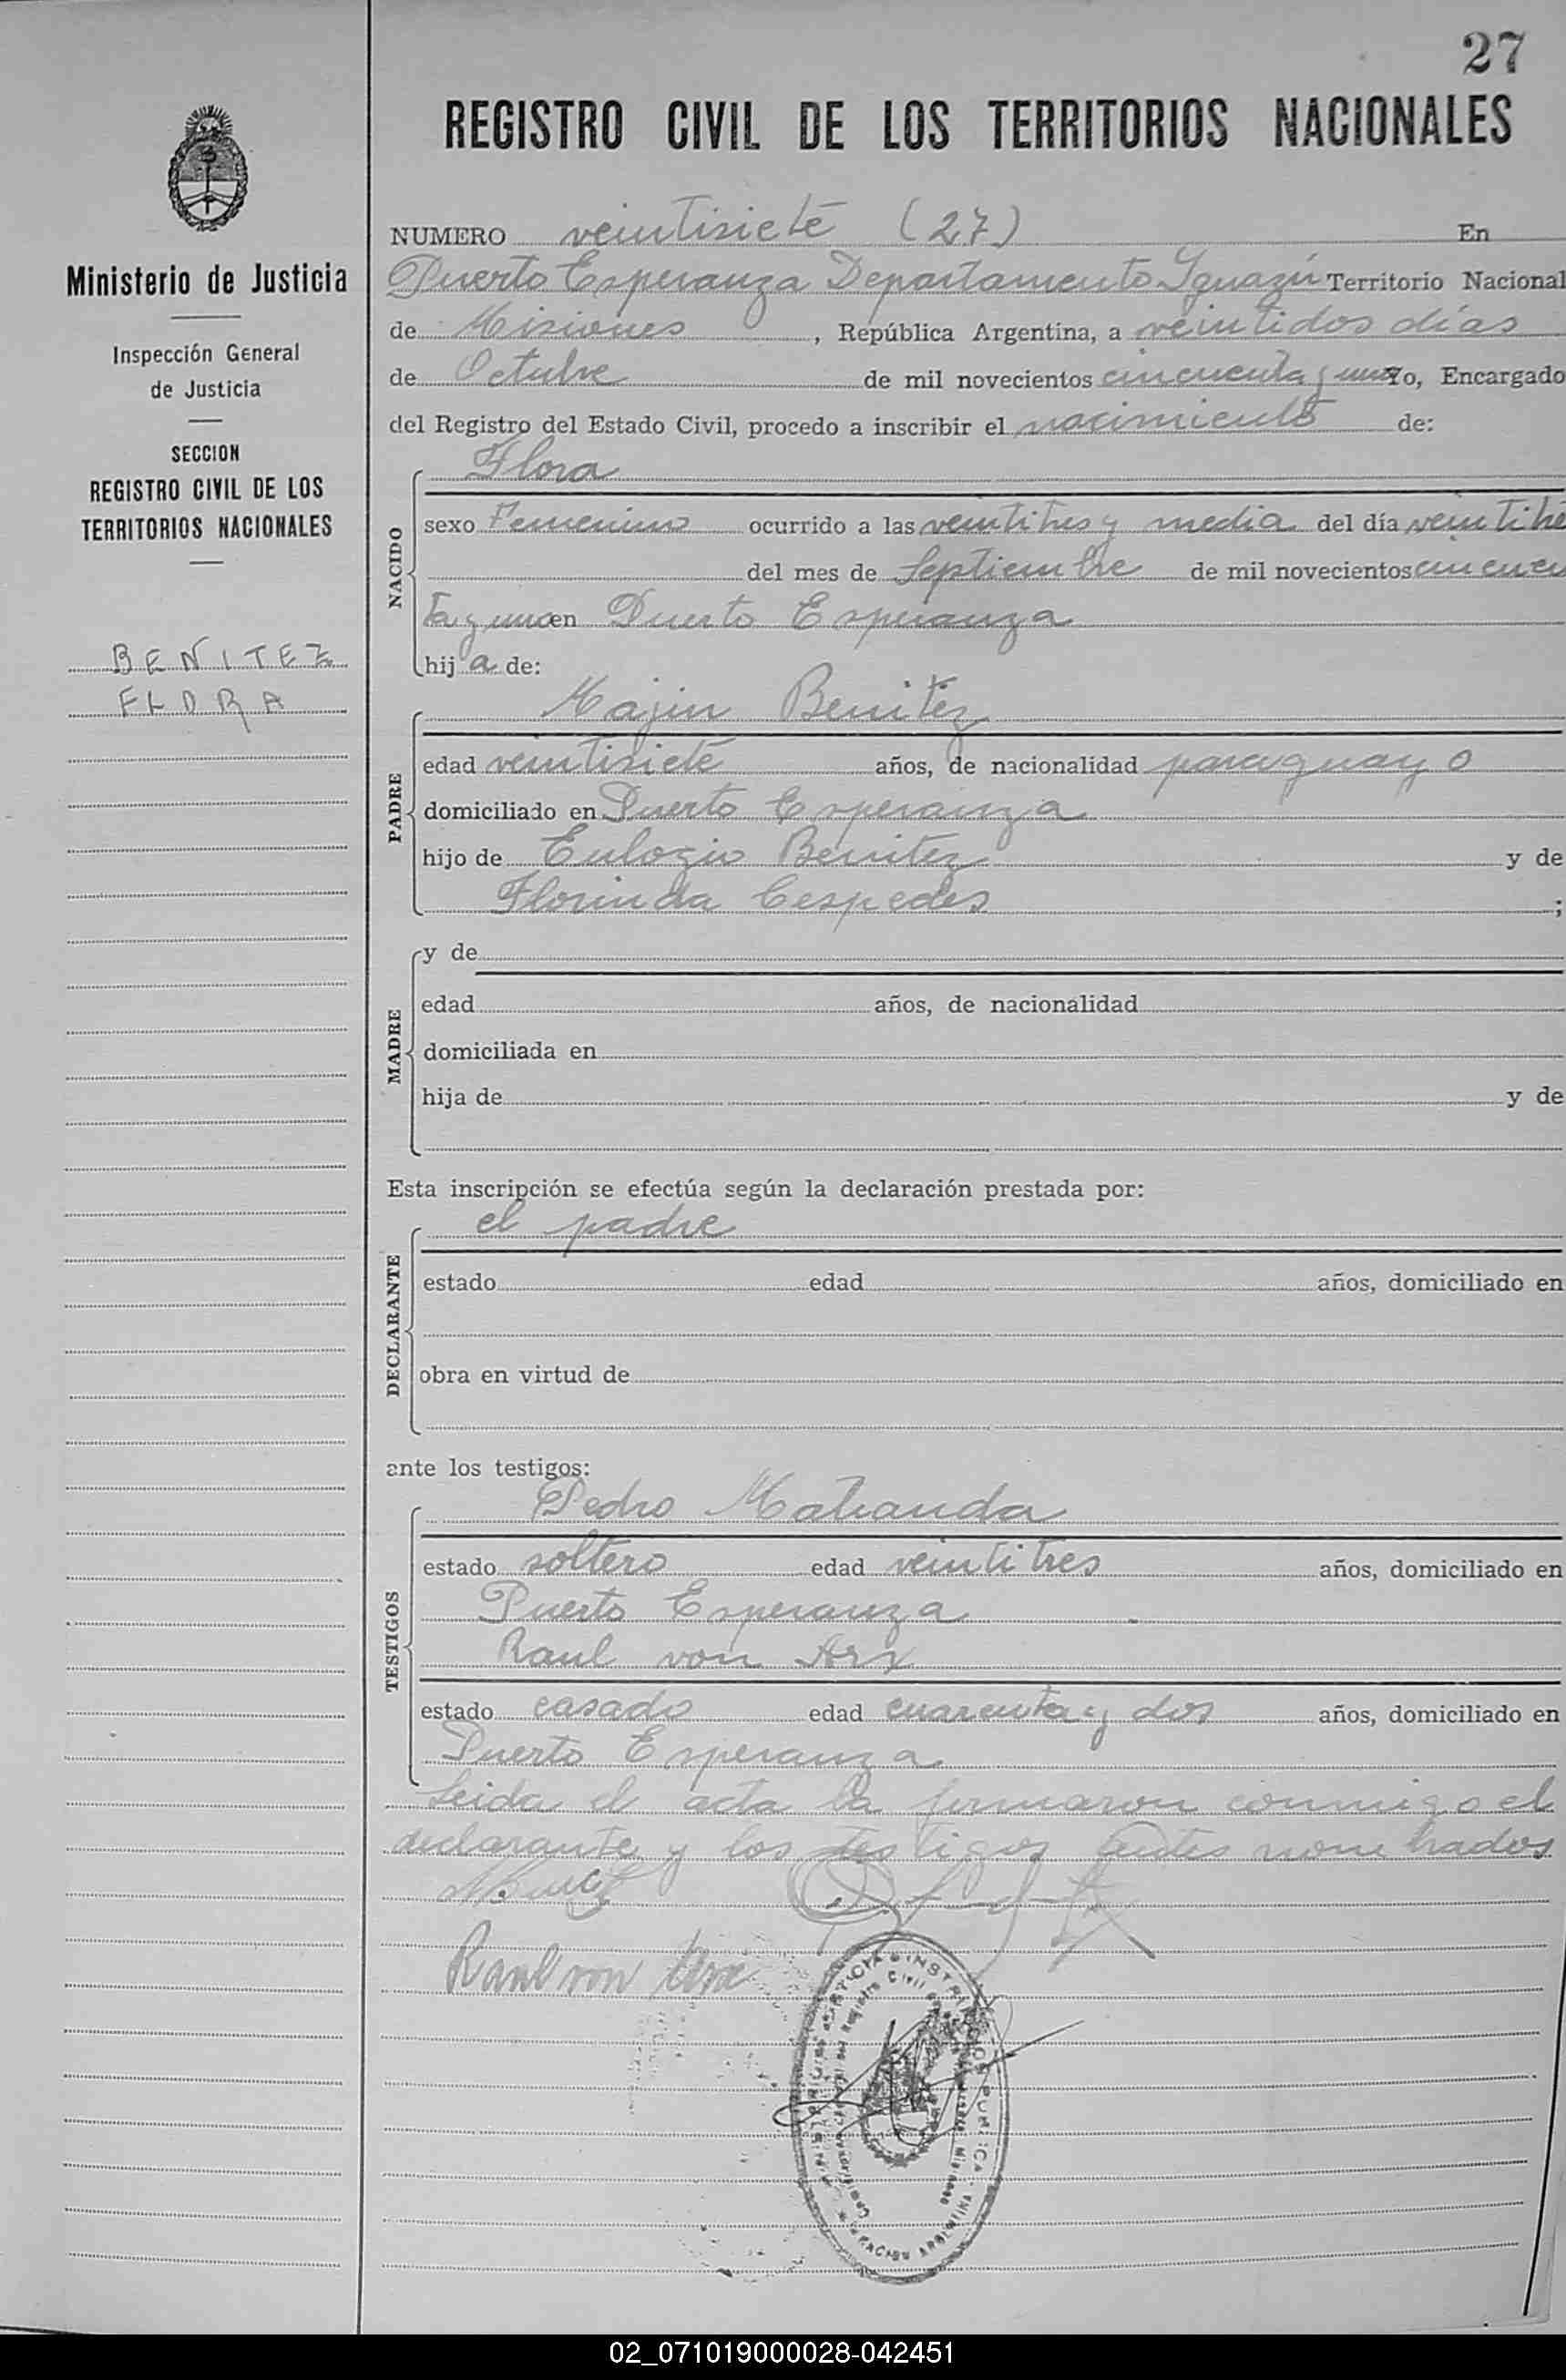 27
REGISTRO CIVIL DE LOS TERRITORIOS NACIONALES
Ministerio de Justicia
Inspección General
de Justicia
SECCION
REGISTRO CIVIL DE LOS
TERRITORIOS NACIONALES
BENITEZ
FLORA
NUMERO veintisiete (27) En
Puerto Esperanza Departamento Iguazú Territorio Nacional
de Misiones, República Argentina, a veintidos días
de Octubre de mil novecientos cincuenta y uno Yo, Encargado
del Registro del Estado Civil, procedo a inscribir el nacimiento de:
NACIDO
Flora
sexo Femenino ocurrido a las veintitres y media del día veintitré
del mes de Septiembre de mil novecientos cincuen
ta y uno en Puerto Esperanza
hija de:
PADRE
Majin Benitez
edad veintisiete años, de nacionalidad paraguayo
domiciliado en Puerto Esperanza
hijo de Eulogio Benitez y de
Florinda Cespedes ;
MADRE
y de
edad años, de nacionalidad
domiciliada en
hija de y de
Esta inscripción se efectúa según la declaración prestada por:
DECLARANTE
el padre
estado edad años, domiciliado en
obra en virtud de
ante los testigos:
TESTIGOS
Pedro Matianda
estado soltero edad veintitres años, domiciliado en
Puerto Esperanza
Raul von Arx
estado casado edad cuarenta y dos años, domiciliado en
Puerto Esperanza
Leida el acta la firmaron conmigo el
declarante y los testigos antes nombrados
Raul von Arx
02_071019000028-042451